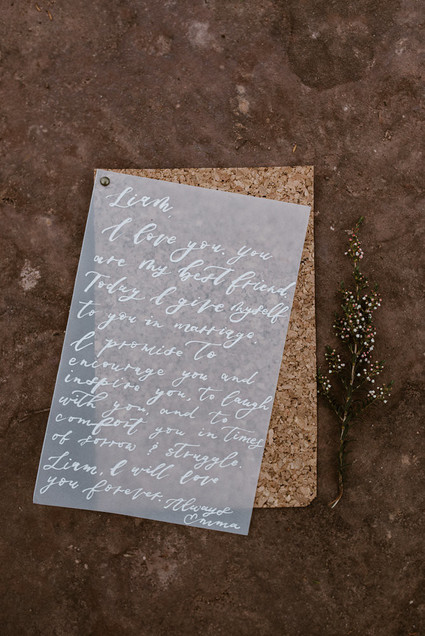 Liam,
I love you. you
are my best friend.
Today I give myself
to you in marriage.
I promise To
encourage you and
inspire you, to laugh
with you, and to
comfort you in Times
of sorrow & struggle.
Liam, I will love
you forever. Always
Emma